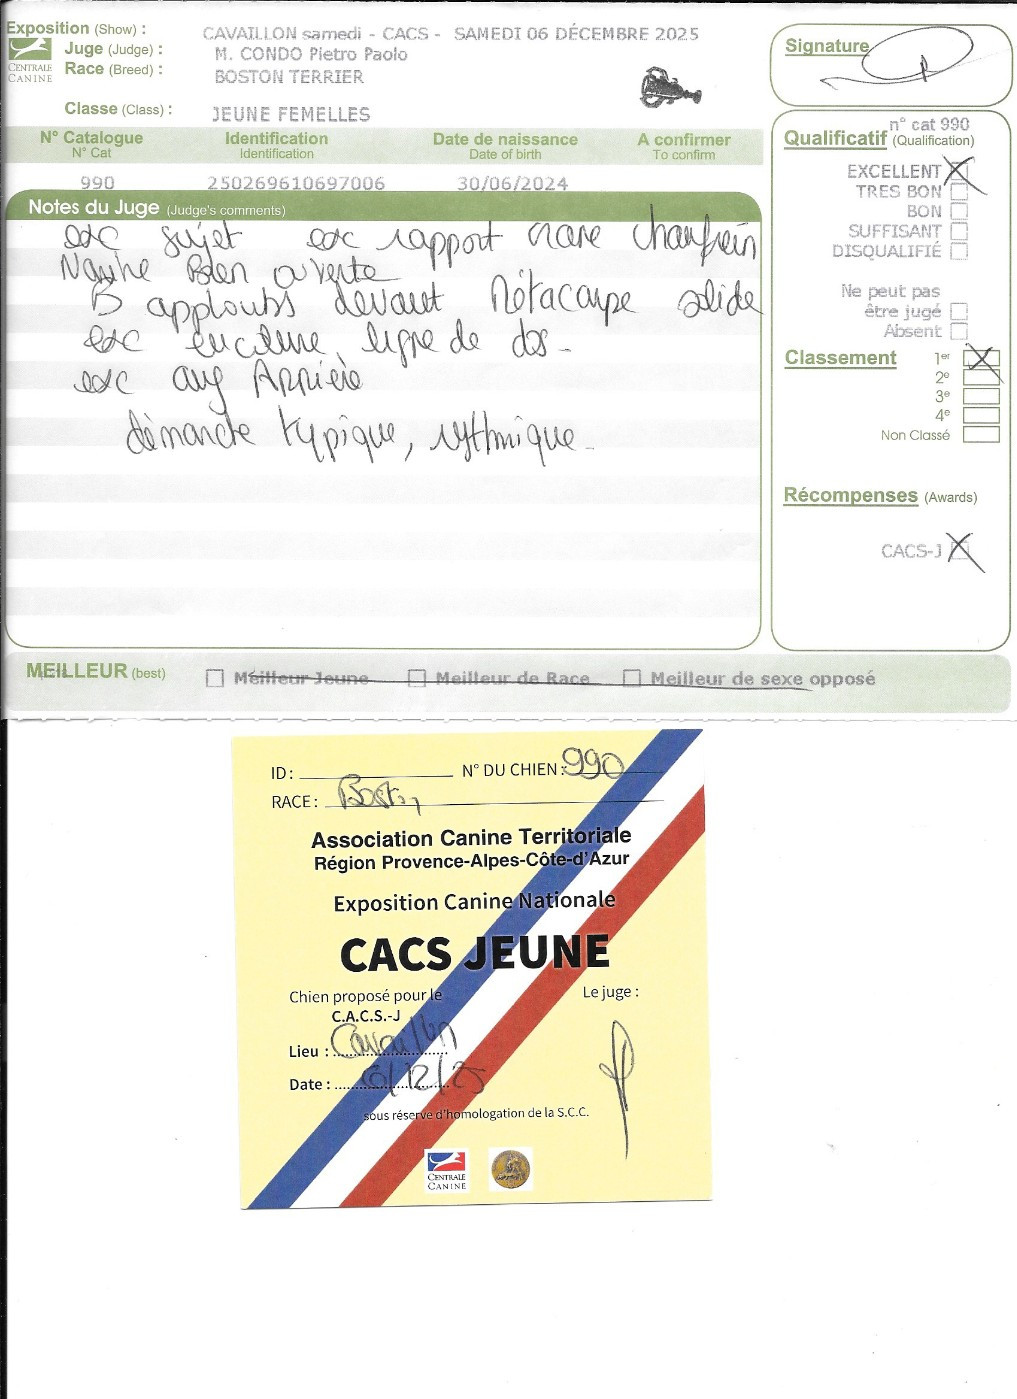 Exposition (Show) : CAVAILLON samedi - CACS - SAMEDI 06 DÉCEMBRE 2025
Juge (Judge) : M. CONDO Pietro Paolo
Race (Breed) : BOSTON TERRIER
CENTRALE CANINE
Classe (Class) : JEUNE FEMELLES
Signature
N° Catalogue Identification Date de naissance A confirmer
N° Cat Identification Date of birth To confirm
990 250269610697006 30/06/2024
Notes du Juge (Judge's comments)
exc sujet exc rapport crane chanfrein
Narine Bien ouverte
B applombs devant solide
exc ligne de dos -
exc ang Arrière
démarche typique, rythmique -
n° cat 990
Qualificatif (Qualification)
EXCELLENT
TRES BON
BON
SUFFISANT
DISQUALIFIÉ
Ne peut pas
être jugé
Absent
Classement 1er
2e
3e
4e
Non Classé
Récompenses (Awards)
CACS-J
MEILLEUR (best) Meilleur Jeune Meilleur de Race Meilleur de sexe opposé
ID : N° DU CHIEN : 990
RACE : Boston
Association Canine Territoriale
Région Provence-Alpes-Côte-d'Azur
Exposition Canine Nationale
CACS JEUNE
Chien proposé pour le Le juge :
C.A.C.S.-J
Lieu : Cavaillon
Date : 6/12/25
sous réserve d'homologation de la S.C.C.
CENTRALE
CANINE